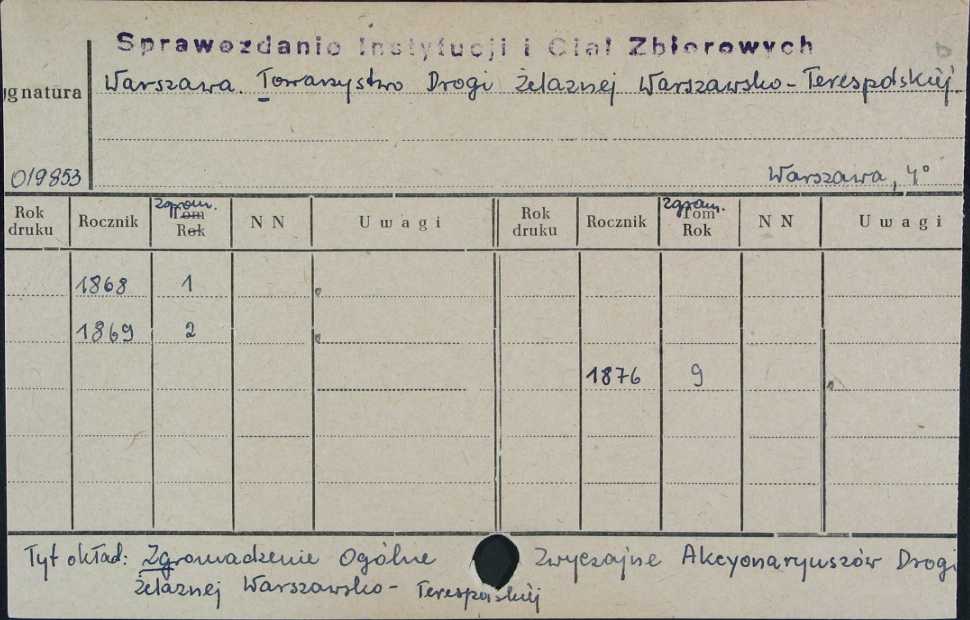 Sprawozdanie Instytucji i Ciał Zbiorowych
gnatura
Warszawa. Towarzystwo Drogi Żelaznej Warszawsko-Terespolskiéj.
019853
Warszawa, 4°
Rok druku Rocznik zgrom. Tom Rok N N Uwagi Rok druku Rocznik zgrom. Tom Rok N N Uwagi
1868 1
1869 2
1876 9
Tyt okład: Zgromadzenie Ogólne Zwyczajne Akcyonaryuszów Drogi
Żelaznej Warszawsko-Terespolskiéj